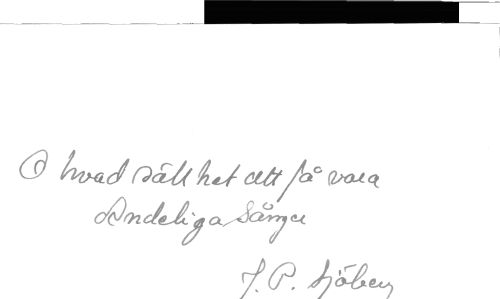 O hvad sällhet att få vara
Andeliga Sånger
J. P. Sjöberg